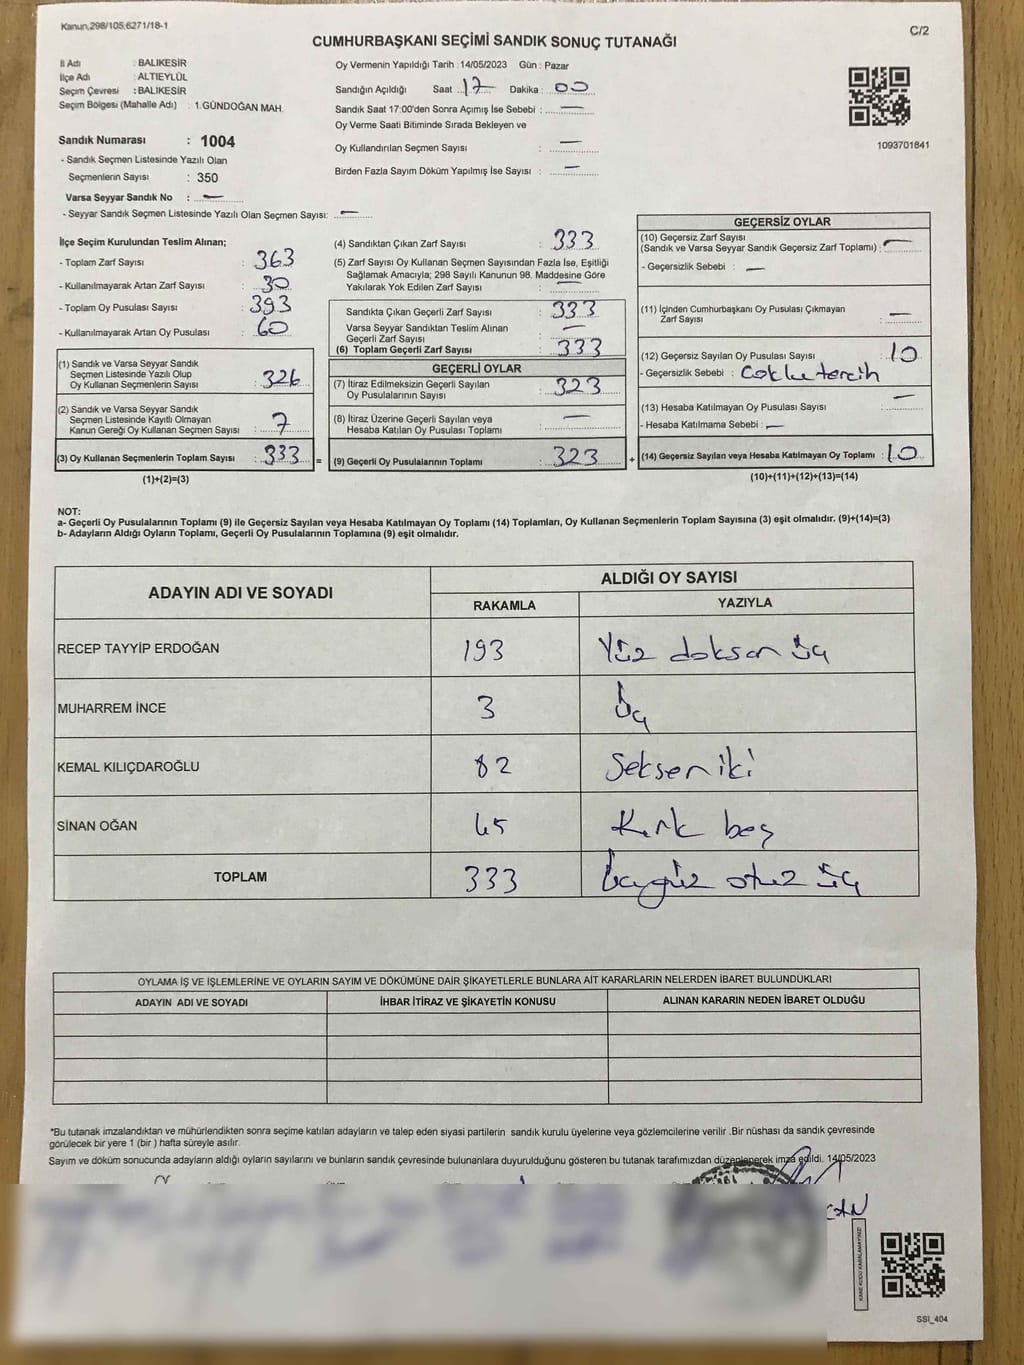 Kanun,298/105,6271/18-1
C/2
CUMHURBAŞKANI SEÇİMİ SANDIK SONUÇ TUTANAĞI
İl Adı : BALIKESİR
İlçe Adı : ALTIEYLÜL
Seçim Çevresi : BALIKESİR
Seçim Bölgesi (Mahalle Adı) : 1.GÜNDOĞAN MAH.
Sandık Numarası : 1004
- Sandık Seçmen Listesinde Yazılı Olan
Seçmenlerin Sayısı : 350
Varsa Seyyar Sandık No : —
- Seyyar Sandık Seçmen Listesinde Yazılı Olan Seçmen Sayısı: —
Oy Vermenin Yapıldığı Tarih : 14/05/2023 Gün : Pazar
Sandığın Açıldığı Saat : 17 Dakika : 00
Sandık Saat 17:00'den Sonra Açımış İse Sebebi : —
Oy Verme Saati Bitiminde Sırada Bekleyen ve
Oy Kullandırılan Seçmen Sayısı : —
Birden Fazla Sayım Döküm Yapılmış İse Sayısı : —
1093701841
İlçe Seçim Kurulundan Teslim Alınan;
- Toplam Zarf Sayısı : 363
- Kullanılmayarak Artan Zarf Sayısı : 30
- Toplam Oy Pusulası Sayısı : 393
- Kullanılmayarak Artan Oy Pusulası : 60
(1) Sandık ve Varsa Seyyar Sandık
Seçmen Listesinde Yazılı Olup
Oy Kullanan Seçmenlerin Sayısı : 326
(2) Sandık ve Varsa Seyyar Sandık
Seçmen Listesinde Kayıtlı Olmayan
Kanun Gereği Oy Kullanan Seçmen Sayısı : 7
(3) Oy Kullanan Seçmenlerin Toplam Sayısı : 333 =
(1)+(2)=(3)
(4) Sandıktan Çıkan Zarf Sayısı : 333
(5) Zarf Sayısı Oy Kullanan Seçmen Sayısından Fazla İse, Eşitliği
Sağlamak Amacıyla; 298 Sayılı Kanunun 98. Maddesine Göre
Yakılarak Yok Edilen Zarf Sayısı : —
Sandıkta Çıkan Geçerli Zarf Sayısı : 333
Varsa Seyyar Sandıktan Teslim Alınan
Geçerli Zarf Sayısı : —
(6) Toplam Geçerli Zarf Sayısı : 333
GEÇERLİ OYLAR
(7) İtiraz Edilmeksizin Geçerli Sayılan
Oy Pusulalarının Sayısı : 323
(8) İtiraz Üzerine Geçerli Sayılan veya
Hesaba Katılan Oy Pusulası Toplamı : —
(9) Geçerli Oy Pusulalarının Toplamı : 323 +
GEÇERSİZ OYLAR
(10) Geçersiz Zarf Sayısı
(Sandık ve Varsa Seyyar Sandık Geçersiz Zarf Toplamı) : —
- Geçersizlik Sebebi : —
(11) İçinden Cumhurbaşkanı Oy Pusulası Çıkmayan
Zarf Sayısı : —
(12) Geçersiz Sayılan Oy Pusulası Sayısı : 10
- Geçersizlik Sebebi : Çoklu tercih
(13) Hesaba Katılmayan Oy Pusulası Sayısı : —
- Hesaba Katılmama Sebebi : —
(14) Geçersiz Sayılan veya Hesaba Katılmayan Oy Toplamı : 10
(10)+(11)+(12)+(13)=(14)
NOT:
a- Geçerli Oy Pusulalarının Toplamı (9) ile Geçersiz Sayılan veya Hesaba Katılmayan Oy Toplamı (14) Toplamları, Oy Kullanan Seçmenlerin Toplam Sayısına (3) eşit olmalıdır. (9)+(14)=(3)
b- Adayların Aldığı Oyların Toplamı, Geçerli Oy Pusulalarının Toplamına (9) eşit olmalıdır.
ADAYIN ADI VE SOYADI ALDIĞI OY SAYISI
RAKAMLA YAZIYLA
RECEP TAYYİP ERDOĞAN 193 Yüz doksan üç
MUHARREM İNCE 3 Üç
KEMAL KILIÇDAROĞLU 82 Seksen iki
SİNAN OĞAN 45 Kırk beş
TOPLAM 333 otuz üç
OYLAMA İŞ VE İŞLEMLERİNE VE OYLARIN SAYIM VE DÖKÜMÜNE DAİR ŞİKAYETLERLE BUNLARA AİT KARARLARIN NELERDEN İBARET BULUNDUKLARI
ADAYIN ADI VE SOYADI İHBAR İTİRAZ VE ŞİKAYETİN KONUSU ALINAN KARARIN NEDEN İBARET OLDUĞU
*Bu tutanak imzalandıktan ve mühürlendikten sonra seçime katılan adayların ve talep eden siyasi partilerin sandık kurulu üyelerine veya gözlemcilerine verilir .Bir nüshası da sandık çevresinde
görülecek bir yere 1 (bir ) hafta süreyle asılır.
Sayım ve döküm sonucunda adayların aldığı oyların sayılarını ve bunların sandık çevresinde bulunanlara duyurulduğunu gösteren bu tutanak tarafımızdan düzenlenerek imza edildi. 14/05/2023
KARE KODU KARALAMAYINIZ!
SSI_404